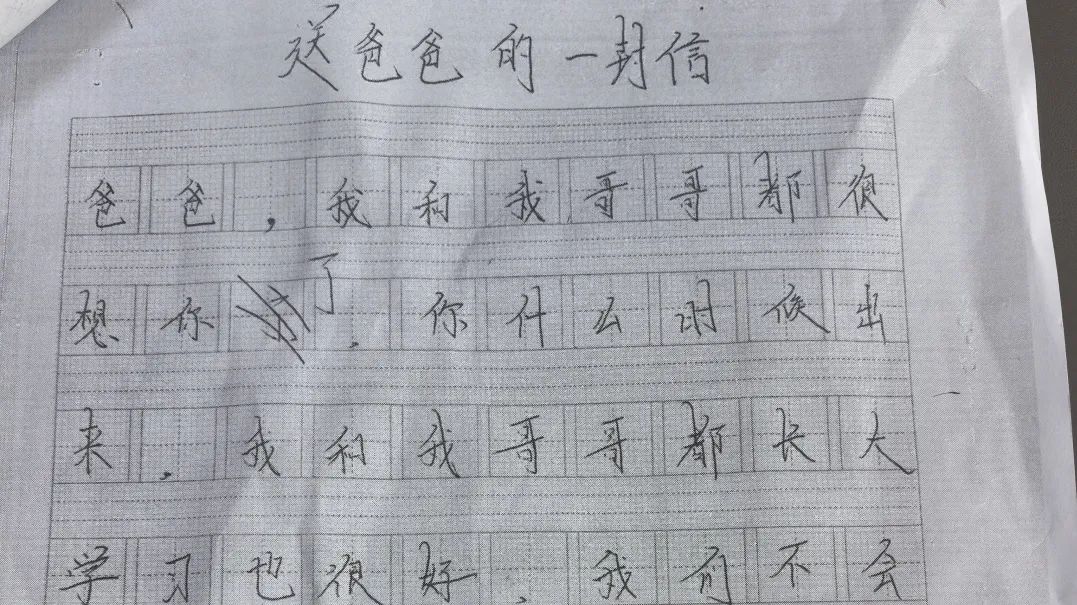 送爸爸的一封信
爸爸，我和我哥哥都很
想你了，你什么时候出
来，我和我哥哥都长大
学习也很好，我们不会